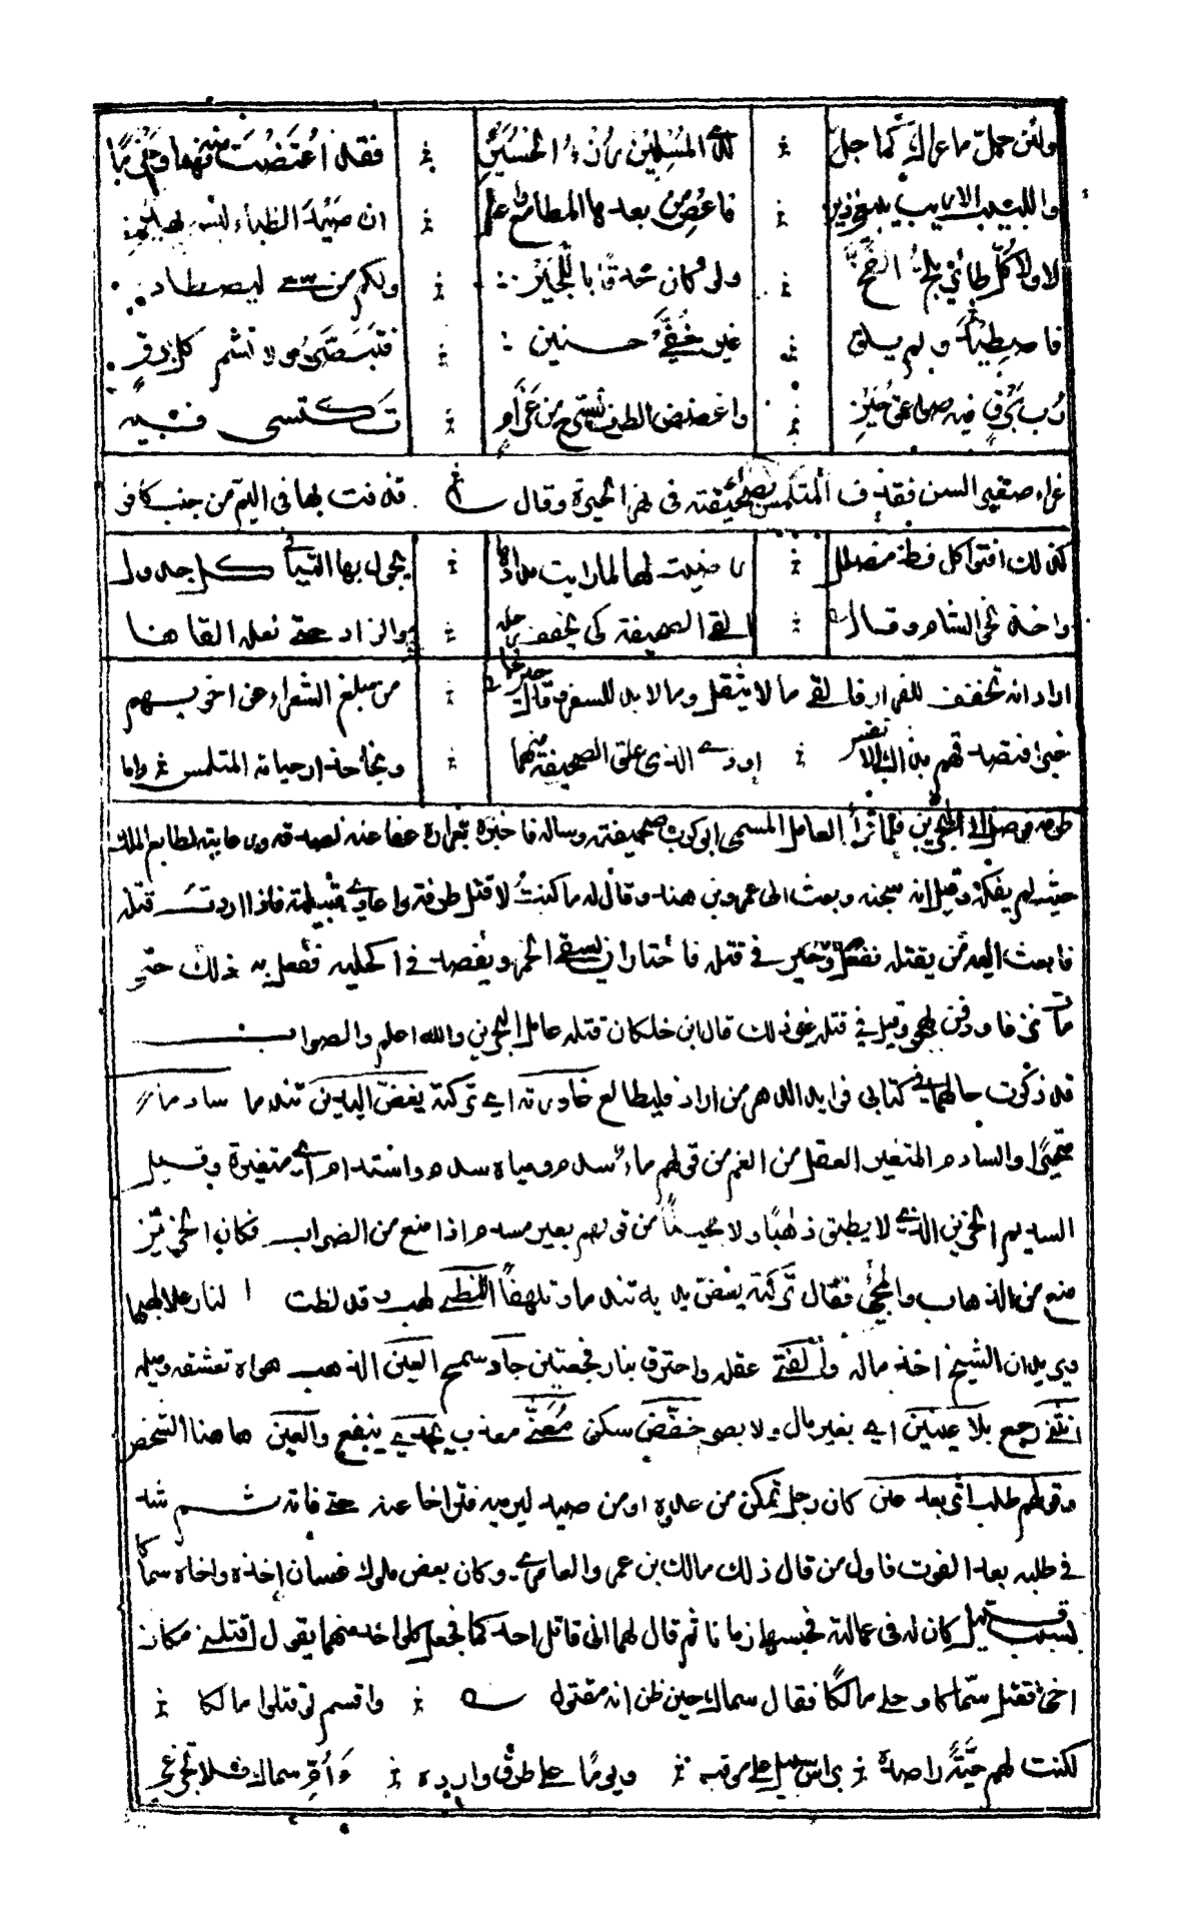 ولئن جل ما عراك كما جل
لدى المسلمين رزء الحسين
فقد اعتضت منه فهما وحزما
واللبيب الاريب يبغي ذين
فاعص من بعدها المطامع واعلم
ان صيد الظباء ليس بهين
لا ولا كل طائر يلج الفخ
ولو كان محدقا باللجين
ولكم من سعى ليصطاد
فاصطيد ولم يلق
غير خفي حنين
فتبصر ولا تشم كل برق
رب برق فيه صواعق حين
واغضض الطرف تستريح من غرام
تكتسي فيه
غراء صقيل السن فقذف المتلمس صحيفته في نهر الحيرة وقال قذفت بها في اليم من جنب كافر
كذلك افتوا كل قط مضلل
رضيت لها لما رايت مدادها
يجول بها التيار كل جدول
واخذ نحو الشام وقال
القى الصحيفة كي يخفف رحله
والزاد حتى نعله القاها
اراد انه تخفف للفرار فالقى ما لا يثقل وما لا بد للسفر وقال
من مبلغ الشعراء عن اخويهم
اودى الذي علق الصحيفة منهما
ونجا حذار حياته المتلمس
طرفة فوصل الى البحرين فلما قرأ العامل المسمى ابو كرب صحيفته وساله فاخبره
حيث لم يفكه وقيل انه سجنه وبعث الى عمرو بن هند وقال له ما كنت لاقتل طرفة واعادي قبيلته فاذا اردت قتله
فابعث اليه من يقتله ففعل وخير في قتله فاختار ان يسقى الخمر ويفصد في اكحليه ففعل به ذلك حتى
مات نزفا ودفن بهجر وقيل في قتله غير ذلك قال ابن خلكان قتله عامل البحرين والله اعلم والصواب
قد ذكرت حالهما في كتابي فرايد الدهر من اراد فليطالع غادرته اي تركته يغض اليدين تندما سادما
متحيرا والسادم المتغير العقل من الغم من قولهم ماء سدم ومياه سدم واسدام اي متغيرة وقيل
السديم الحزين الذي لا يطيق ذهابا ولا مجيئا من قولهم بعير مسدم اذا منع من الضراب فكان الحزين
منع من الذهاب والمجئ فقال تركته يعض يديه تندما وتلهفا النظى لهب وقد لظت النار علا لهبها
ويريد ان الشيخ اخذ ماله والفتى عقله واحترق بنار فجعتين جاد سمح العين الذهب هواه تعشقه وميله
انثنى رجع بلا عينين اي بغير مال ولا بصر خفض سكن معنى معذب يجدي ينفع والعين هاهنا الشخص
وقولهم طلب اثر بعد عين كان رجل تمكن من عدوه او من صيد ليرميه فتراخا عنه حتى فاته ثم شد
في طلبه بعد الفوت فاول من قال ذلك مالك بن عمرو العامري وكان بعض ملوك غسان اخذه واخاه سماكا
بسبب قتيل كان له في عمالة فحبسهما زمانا ثم قال لهما اني قاتل احدكما فجعل كل واحد منهما يقول اقتلني مكان
اخي فقتل سماكا وخلى مالكا فقال سماك حين ظن انه مقتول واقسم لو قتلوا مالكا
لكنت لهم حية راصدة براس سبيل على مرقب ويوما على طرق واردة